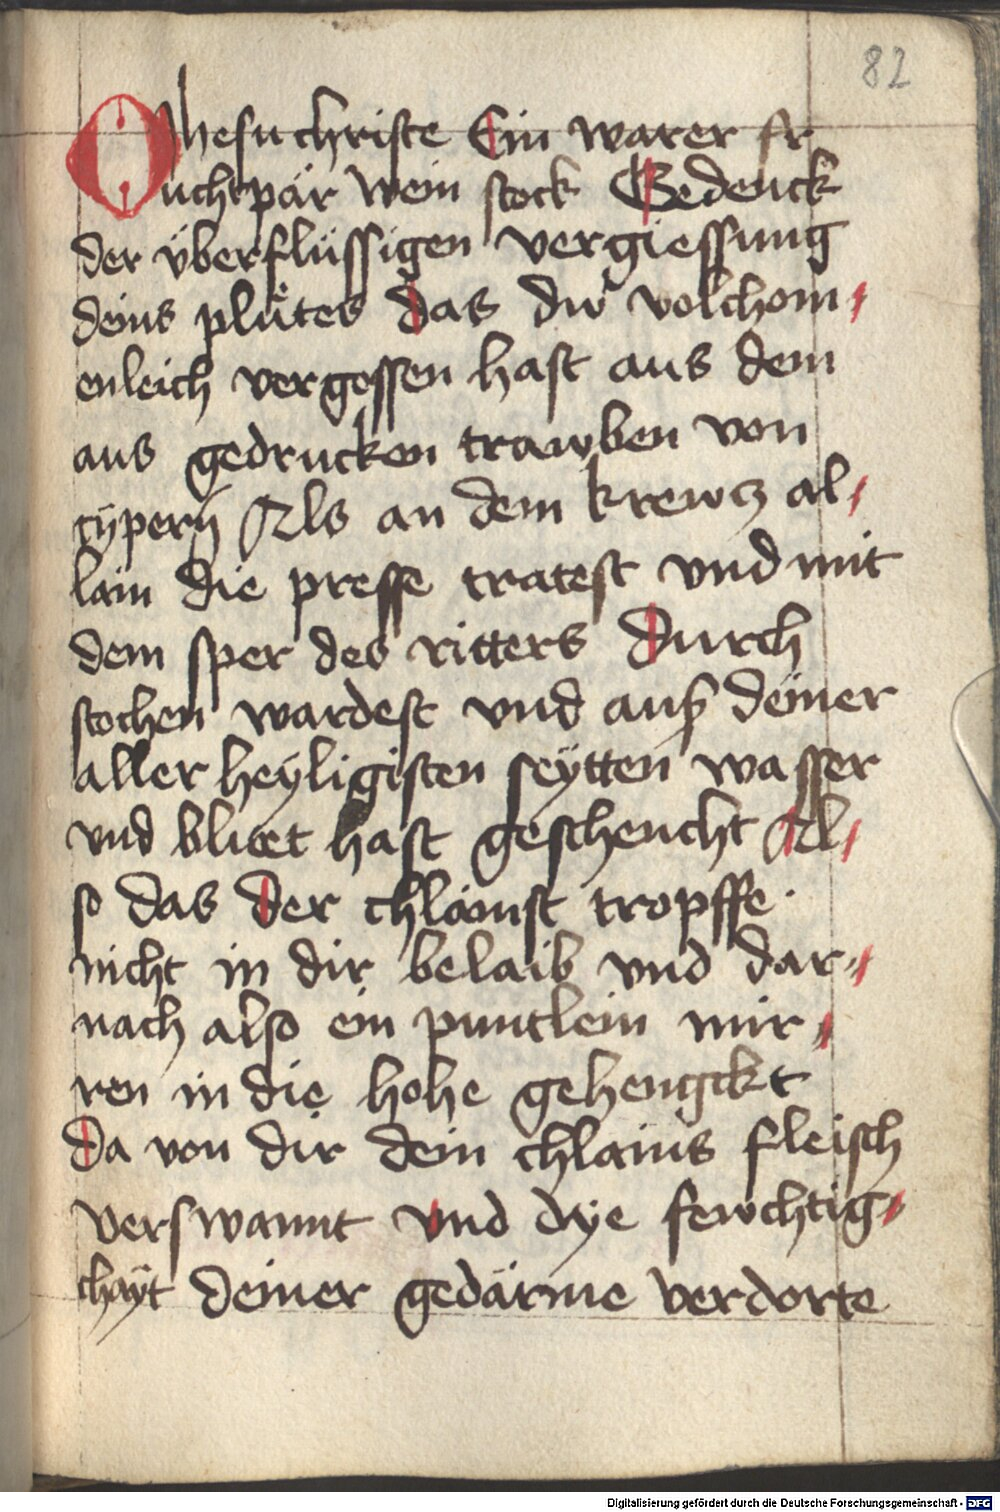 82
O Jhesu christe Ein warer fr
uchtpär wein stock Gedenck
der überflüssigen vergiessung
deins plůtes das dw volchom-
enleich vergossen hast aus dem
aus gedrucken trawben von
cÿpern Als an dem krewcz al-
lain die presse tratest vnd mit
dem sper des ritters durch
stochen wardest vnd auß deiner
aller heyligisten seÿtten wasser
vnd bluet hast geschencht Al-
so das der chlainst tropffe.
nicht in dir belaib vnd dar-
nach also ein puntlein mir-
ren in die hohe gehengckt
Da von dir dein chlains fleisch
verswannt vnd dye fewchtig-
chayt deiner gedärme verdorte
Digitalisierung gefördert durch die Deutsche Forschungsgemeinschaft - DFG